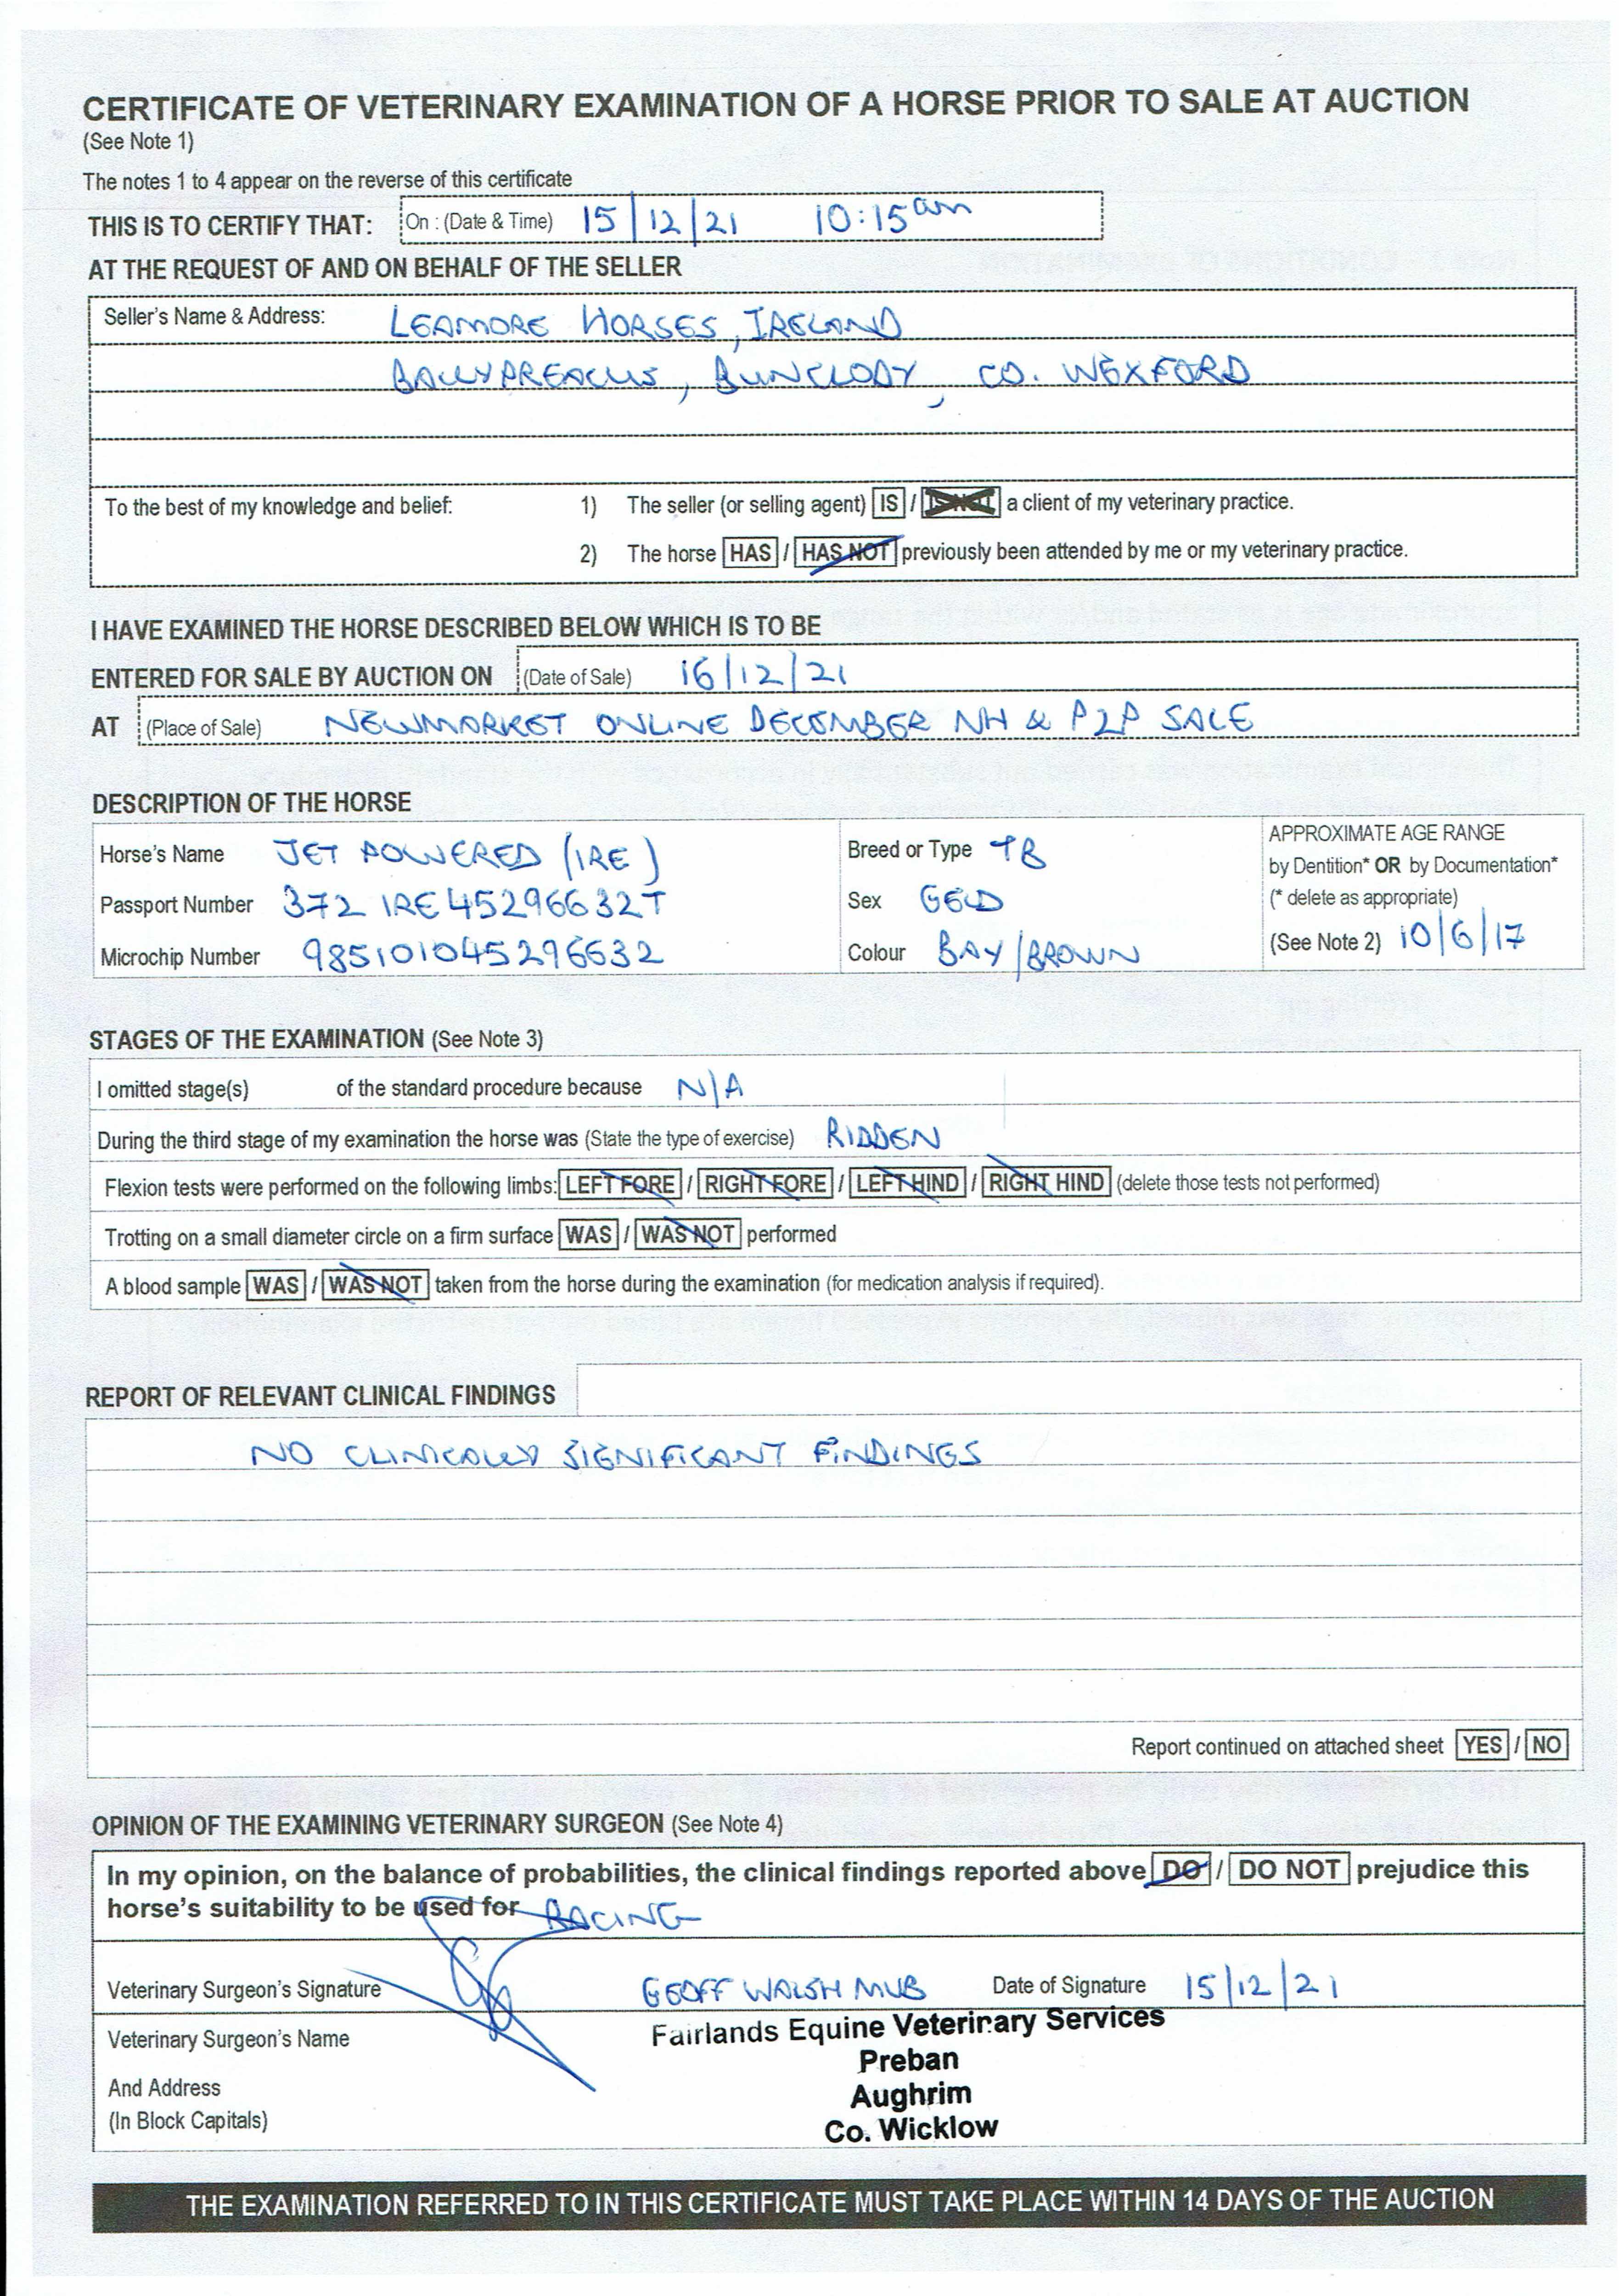 CERTIFICATE OF VETERINARY EXAMINATION OF A HORSE PRIOR TO SALE AT AUCTION
(See Note 1)
The notes 1 to 4 appear on the reverse of this certificate
THIS IS TO CERTIFY THAT: On : (Date & Time) 15/12/21 10:15am
AT THE REQUEST OF AND ON BEHALF OF THE SELLER
Seller's Name & Address: LEAMORE HORSES, IRELAND
BUNCLODY, CO. WEXFORD
To the best of my knowledge and belief: 1) The seller (or selling agent) IS / IS NOT a client of my veterinary practice.
2) The horse HAS / HAS NOT previously been attended by me or my veterinary practice.
I HAVE EXAMINED THE HORSE DESCRIBED BELOW WHICH IS TO BE
ENTERED FOR SALE BY AUCTION ON (Date of Sale) 16/12/21
AT (Place of Sale) NEWMARKET ONLINE DECEMBER NH & P2P SALE
DESCRIPTION OF THE HORSE
Horse's Name JET POWERED (IRE)
Passport Number 372 IRE 45296632T
Microchip Number 985101045296632
Breed or Type TB
Sex GELD
Colour BAY/BROWN
APPROXIMATE AGE RANGE
by Dentition* OR by Documentation*
(* delete as appropriate)
(See Note 2) 10/6/17
STAGES OF THE EXAMINATION (See Note 3)
I omitted stage(s) of the standard procedure because N/A
During the third stage of my examination the horse was (State the type of exercise) RIDDEN
Flexion tests were performed on the following limbs: LEFT FORE / RIGHT FORE / LEFT HIND / RIGHT HIND (delete those tests not performed)
Trotting on a small diameter circle on a firm surface WAS / WAS NOT performed
A blood sample WAS / WAS NOT taken from the horse during the examination (for medication analysis if required).
REPORT OF RELEVANT CLINICAL FINDINGS
NO CLINICALLY SIGNIFICANT FINDINGS
Report continued on attached sheet YES / NO
OPINION OF THE EXAMINING VETERINARY SURGEON (See Note 4)
In my opinion, on the balance of probabilities, the clinical findings reported above DO / DO NOT prejudice this
horse's suitability to be used for RACING
Veterinary Surgeon's Signature GEOFF WALSH MVB Date of Signature 15/12/21
Veterinary Surgeon's Name
And Address
(In Block Capitals)
Fairlands Equine Veterinary Services
Preban
Aughrim
Co. Wicklow
THE EXAMINATION REFERRED TO IN THIS CERTIFICATE MUST TAKE PLACE WITHIN 14 DAYS OF THE AUCTION